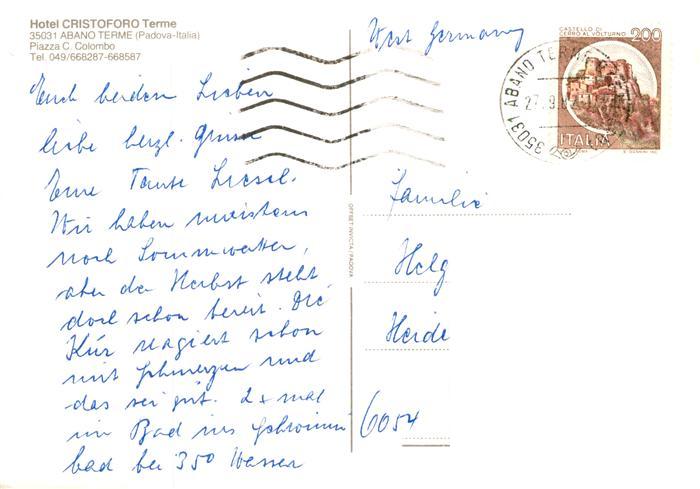 Hotel CRISTOFORO Terme
35031 ABANO TERME (Padova-Italia)
Piazza C. Colombo
Tel. 049/668287-668587
West Germany
CASTELLO DI
CERRO AL VOLTURNO 200
ITALIA
35031 ABANO TERME
27.9.8
OFFSET INVICTA PADOVA
Euch beiden Lieben
liebe herzl. Grüsse
Eure Tante Liesel.
Wir haben meistens
noch Sommwetter,
aber der Herbst steht
doch schon bereit. Die
Kur reagiert schon
mit Schmerzen und
das sei gut. 2x mal
im Bad ins Schwimm
bad bei 35° Wasser
Familie
Helg
Heide
6054